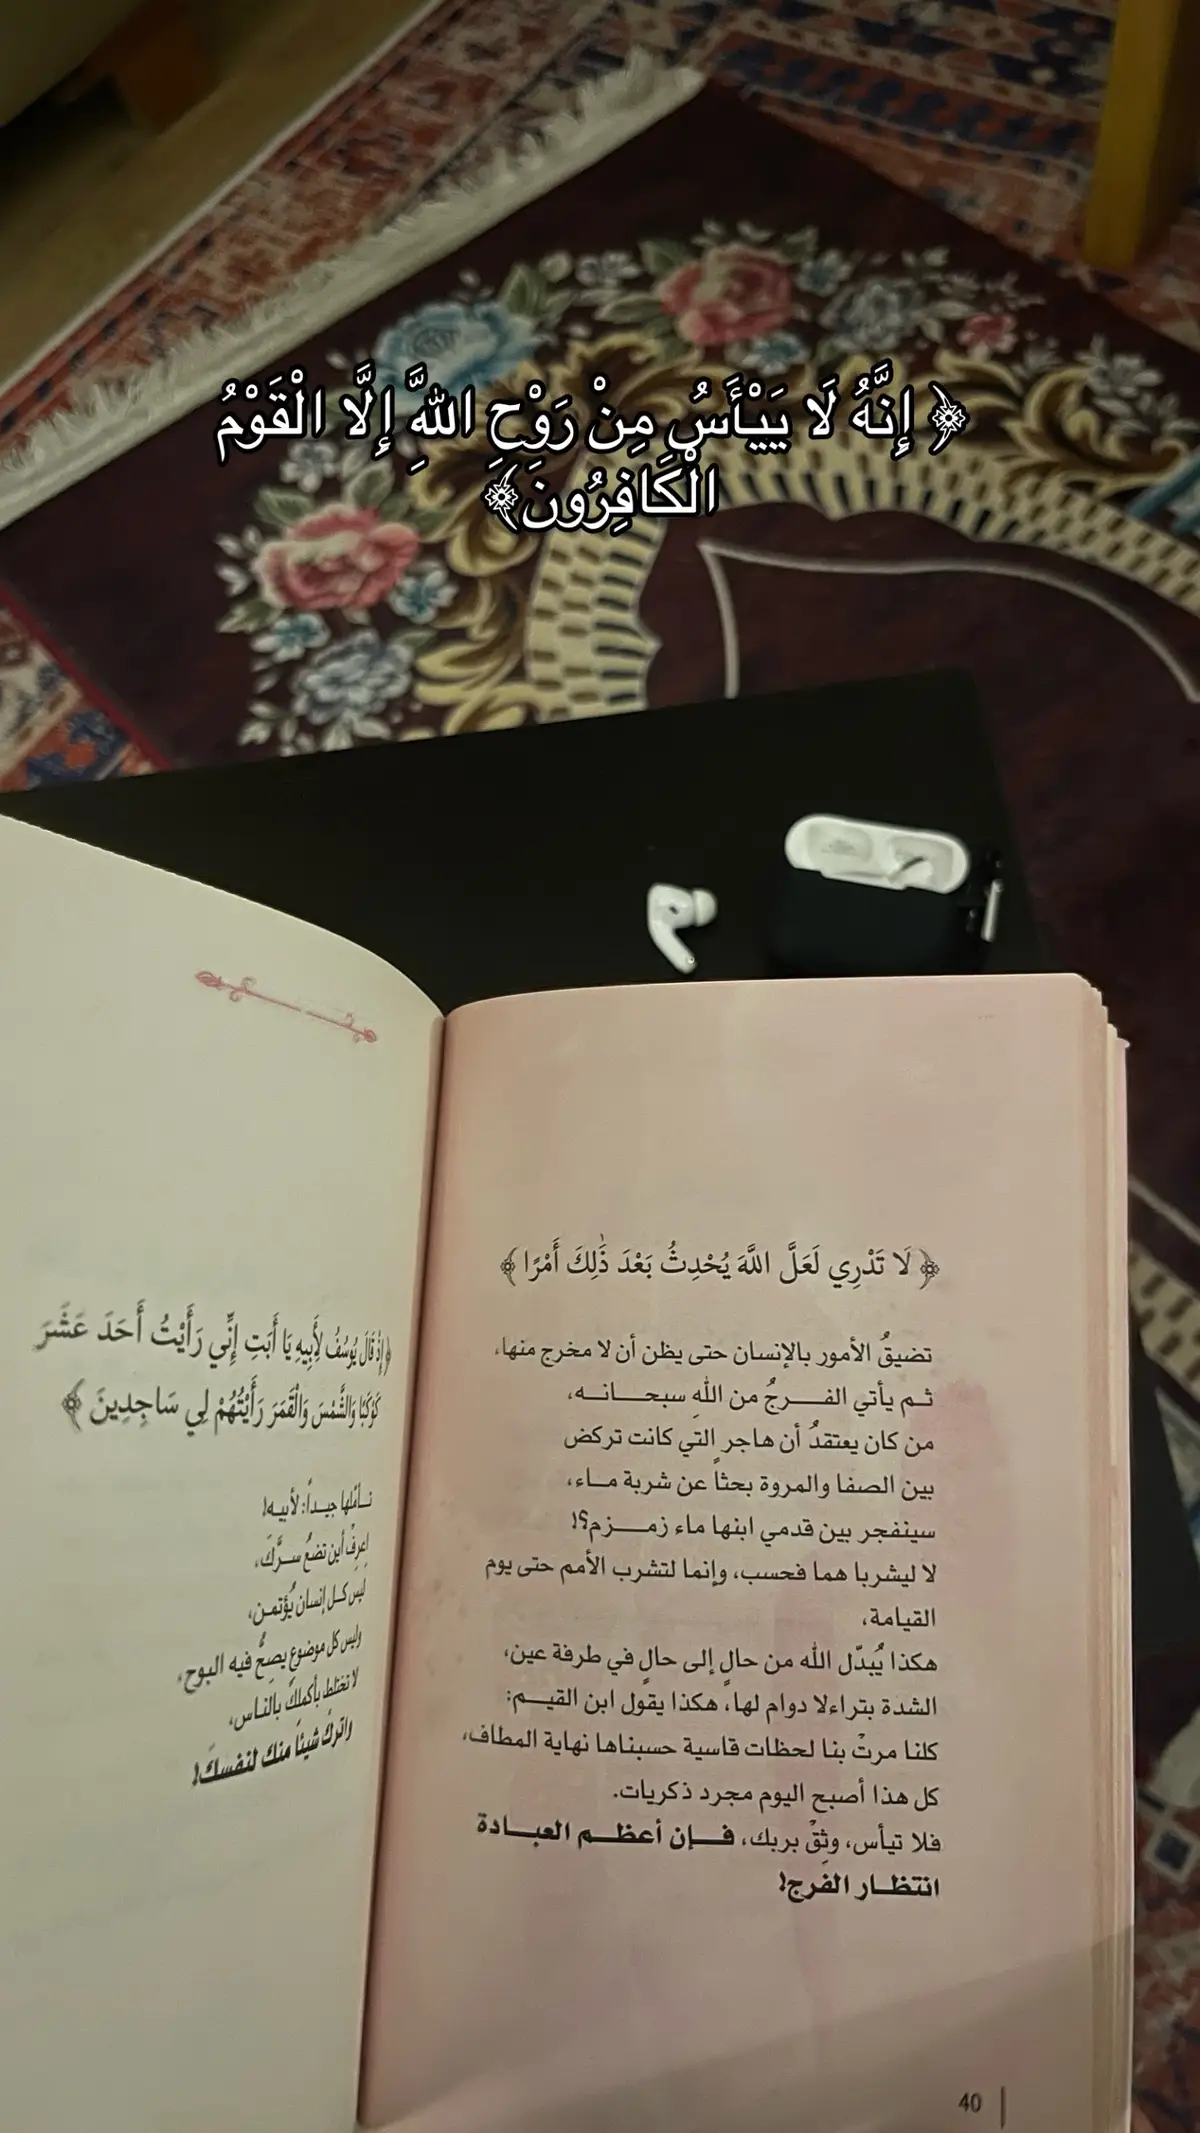 ﴿ إِنَّهُ لَا يَيْأَسُ مِنْ رَوْحِ اللَّهِ إِلَّا الْقَوْمُ
الْكَافِرُونَ﴾
﴿ لَا تَدْرِي لَعَلَّ اللَّهَ يُحْدِثُ بَعْدَ ذَٰلِكَ أَمْرًا ﴾
تضيقُ الأمور بالإنسان حتى يظن أن لا مخرج منها،
ثم يأتي الفرجُ من اللهِ سبحانه،
من كان يعتقدُ أن هاجر التي كانت تركض
بين الصفا والمروة بحثاً عن شربة ماء،
سينفجر بين قدمي ابنها ماء زمزم؟!
لا ليشربا هما فحسب، وإنما لتشرب الأمم حتى يوم
القيامة،
هكذا يُبدّل الله من حالٍ إلى حالٍ في طرفة عين،
الشدة بتراءلا دوام لها، هكذا يقول ابن القيم:
كلنا مرتْ بنا لحظات قاسية حسبناها نهاية المطاف،
كل هذا أصبح اليوم مجرد ذكريات.
فلا تيأس، وثِقْ بربك، فإن أعظم العبادة
انتظار الفرج!
40
﴿ إِذْ قَالَ يُوسُفُ لِأَبِيهِ يَا أَبَتِ إِنِّي رَأَيْتُ أَحَدَ عَشَرَ
كَوْكَبًا وَالشَّمْسَ وَالْقَمَرَ رَأَيْتُهُمْ لِي سَاجِدِينَ ﴾
تأملها جيداً: لأبيه!
اِعرفْ أين تضعُ سرَّكَ،
ليس كل إنسان يُؤتمن،
وليس كل موضوعٍ يصحُّ فيه البوح،
لا تختلط بأكملكَ بالناس،
واتركْ شيئاً منك لنفسكَ!